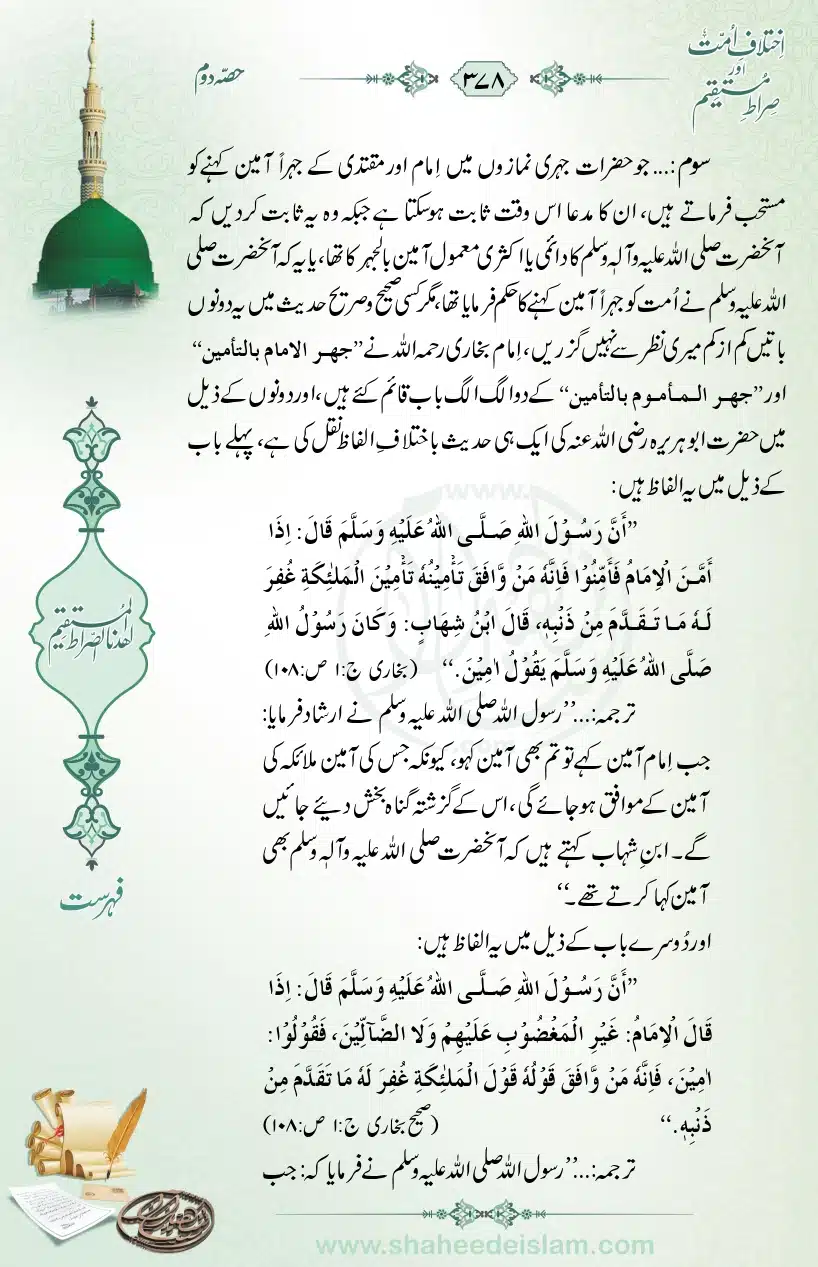 اِختلافِ اُمّت
اور
صِراطِ مُستقیم
۳۷۸
حصّہ دوم
سوم:... جو حضرات جہری نمازوں میں اِمام اور مقتدی کے جہراً آمین کہنے کو
مستحب فرماتے ہیں، ان کا مدعا اس وقت ثابت ہوسکتا ہے جبکہ وہ یہ ثابت کردیں کہ
آنحضرت صلی اللہ علیہ وآلہ وسلم کا دائمی یا اکثری معمول آمین بالجہر کا تھا، یا یہ کہ آنحضرت صلی
اللہ علیہ وسلم نے اُمت کو جہراً آمین کہنے کا حکم فرمایا تھا، مگر کسی صحیح و صریح حدیث میں یہ دونوں
باتیں کم از کم میری نظر سے نہیں گزریں، اِمام بخاری رحمہ اللہ نے ”جهر الامام بالتأمين“
اور ”جهر المأموم بالتأمين“ کے دو الگ الگ باب قائم کئے ہیں، اور دونوں کے ذیل
میں حضرت ابوہریرہ رضی اللہ عنہ کی ایک ہی حدیث باختلافِ الفاظ نقل کی ہے، پہلے باب
کے ذیل میں یہ الفاظ ہیں:
”أَنَّ رَسُوْلَ اللهِ صَلَّى اللهُ عَلَيْهِ وَسَلَّمَ قَالَ: اِذَا
أَمَّنَ الْاِمَامُ فَأَمِّنُوْا فَاِنَّهٗ مَنْ وَّافَقَ تَأْمِيْنُهٗ تَأْمِيْنَ الْمَلٰئِكَةِ غُفِرَ
لَهٗ مَا تَقَدَّمَ مِنْ ذَنْبِهٖ، قَالَ ابْنُ شِهَابٍ: وَكَانَ رَسُوْلُ اللهِ
صَلَّى اللهُ عَلَيْهِ وَسَلَّمَ يَقُوْلُ اٰمِيْنَ.“ (بخاری ج:۱ ص:۱۰۸)
ترجمہ:...”رسول اللہ صلی اللہ علیہ وسلم نے ارشاد فرمایا:
جب اِمام آمین کہے تو تم بھی آمین کہو، کیونکہ جس کی آمین ملائکہ کی
آمین کے موافق ہوجائے گی، اس کے گزشتہ گناہ بخش دیئے جائیں
گے۔ ابنِ شہاب کہتے ہیں کہ آنحضرت صلی اللہ علیہ وآلہ وسلم بھی
آمین کہا کرتے تھے۔“
اور دُوسرے باب کے ذیل میں یہ الفاظ ہیں:
”أَنَّ رَسُوْلَ اللهِ صَلَّى اللهُ عَلَيْهِ وَسَلَّمَ قَالَ: اِذَا
قَالَ الْاِمَامُ: غَيْرِ الْمَغْضُوْبِ عَلَيْهِمْ وَلَا الضَّآلِّيْنَ، فَقُوْلُوْا:
اٰمِيْنَ، فَاِنَّهٗ مَنْ وَّافَقَ قَوْلُهٗ قَوْلَ الْمَلٰئِكَةِ غُفِرَ لَهٗ مَا تَقَدَّمَ مِنْ
ذَنْبِهٖ.“ (صحیح بخاری ج:۱ ص:۱۰۸)
ترجمہ:...”رسول اللہ صلی اللہ علیہ وسلم نے فرمایا کہ: جب
اهدنا الصراط المستقيم
فہرست
www.shaheedeislam.com